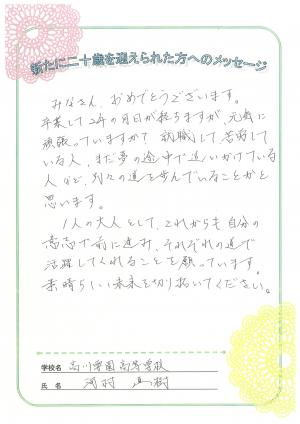 新たに二十歳を迎えられた方へのメッセージ
みなさん、おめでとうございます。
卒業して2年の月日が経ちますが、元気に
頑張っていますか？ 就職して、苦労して
いる人、まだ夢の途中で追いかけている
人など、別々の道を歩んでいることかと
思います。
1人の大人として、これからも自分の
意志で前に進み、それぞれの道で
活躍してくれることを願っています。
素晴らしい未来を切り拓いてください。
学校名 高川学園高等学校
氏名 河村 直樹